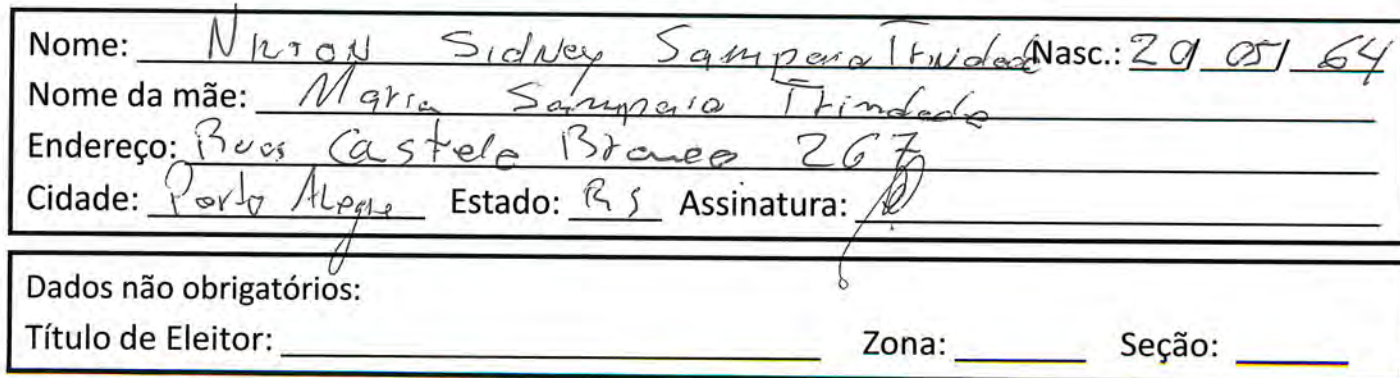 Nome: Nilton Sidney Sampaio Trindade Nasc.: 20/05/64
Nome da mãe: Maria Sampaio Trindade
Endereço: Rua Castelo Branco 267
Cidade: Porto Alegre Estado: RS Assinatura:
Dados não obrigatórios:
Título de Eleitor: Zona: Seção: